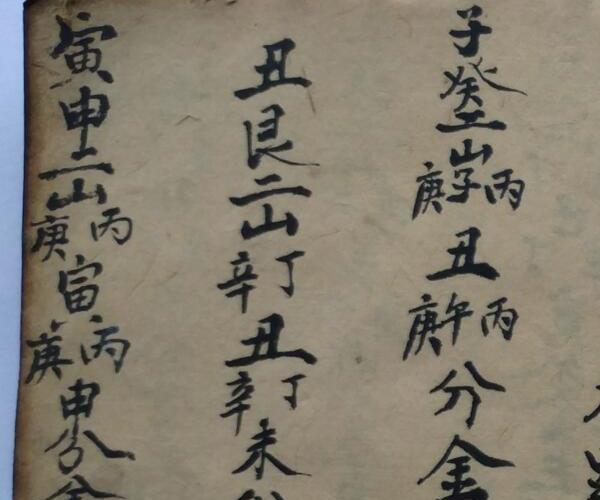 子癸二山丙庚子丑丙庚午分金
丑艮二山丁辛丑丁辛未分
寅申二山丙庚寅丙庚申分金